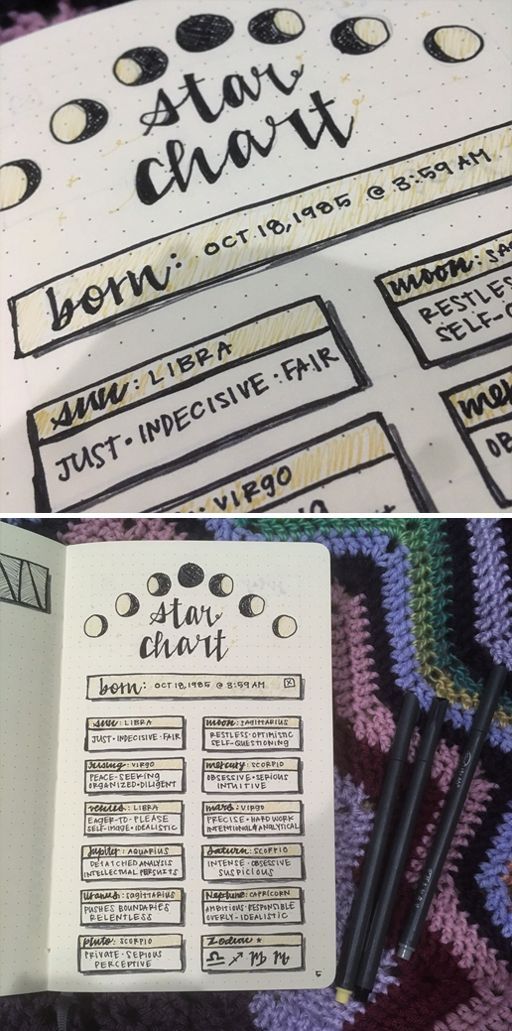 star
chart
born: OCT 18, 1985 @ 3:59 AM
moon: SA
RESTLES
SELF-Q
sun: LIBRA
JUST • INDECISIVE • FAIR
me
OB
: VIRGO
star
chart
born: OCT 18, 1985 @ 3:59 AM
sun: LIBRA
JUST • INDECISIVE • FAIR
moon: SAGITTARIUS
RESTLESS • OPTIMISTIC
SELF-QUESTIONING
rising: VIRGO
PEACE-SEEKING
ORGANIZED • DILIGENT
mercury: SCORPIO
OBSESSIVE • SERIOUS
INTUITIVE
venus: LIBRA
EAGER-TO-PLEASE
SELF-IMAGE • IDEALISTIC
mars: VIRGO
PRECISE • HARD WORK
ANALYTICAL
jupiter: AQUARIUS
DETATCHED ANALYSIS
INTELLECTUAL PURSUITS
saturn: SCORPIO
INTENSE • OBSESSIVE
SUSPICIOUS
Uranus: SAGITTARIUS
PUSHES BOUNDARIES
RELENTLESS
Neptune: CAPRICORN
AMBITIOUS • RESPONSIBLE
OVERLY-IDEALISTIC
pluto: SCORPIO
PRIVATE • SERIOUS
PERCEPTIVE
Zodiac ★
♎ ♐ ♍ ♏